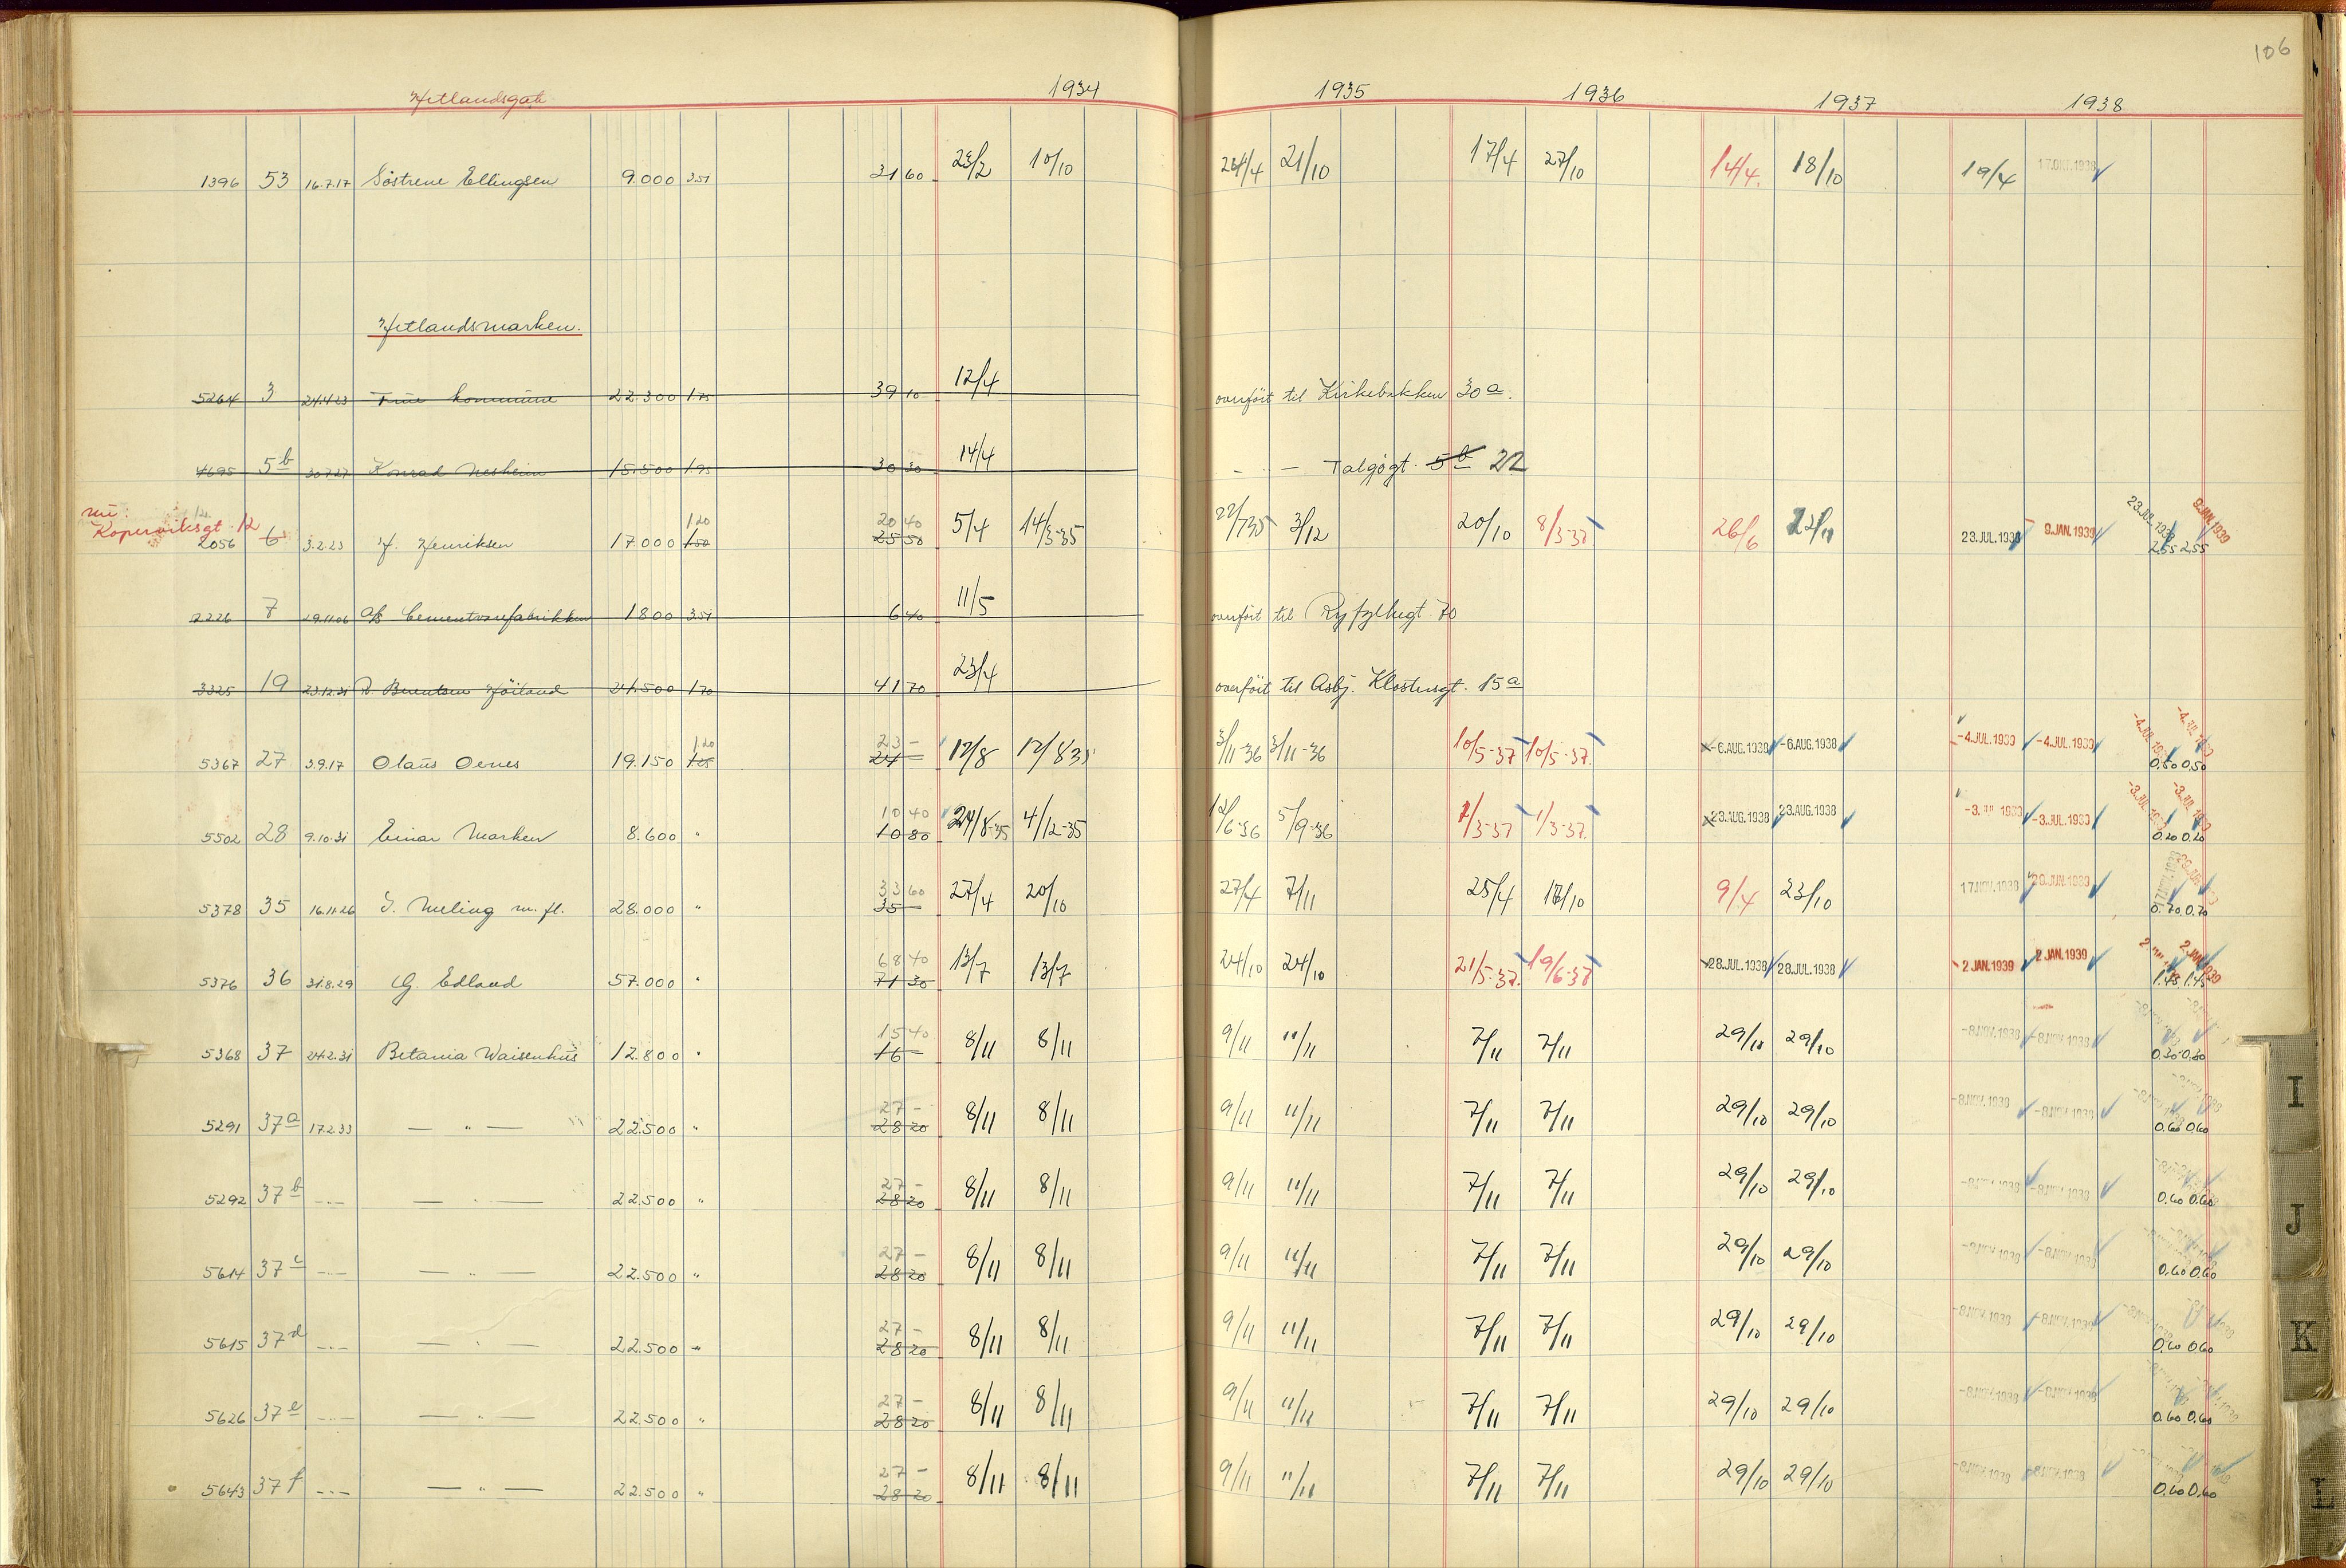 106
Hetlandsgate 1934 1935 1936 1937 1938
1396 53 16.7.17 Söstrene Ellingsen 9.000 3.51 31 60 23/2 10/10 24/4 21/10 17/4 27/10 14/4. 18/10 19/4 17.OKT.1938
Hetlandsmarken.
5264 3 24.4.23 Frue kommune 22.300 1.75 39 10 12/4 overfört til Kirkebakken 30 a.
4695 5 b 30.7.27 Konrad Nesheim 15.500 1.95 30 30 14/4 — " — Talgögt. 5 b 22
nu: Koperviksgt. 12
1 20 20 40
2056 6 3.2.23 H. Henriksen 17.000 1.50 25 50 5/4 14/3-35 22/7 35 3/12 20/10 8/3-37 26/6 22/11 23.JUL.1938 9.JAN.1939 23.JUL.1938 9.JAN.1939 2.55 2.55
2226 7 29.11.06 A/S Cementvarefabrikken 1800 3.51 6 40 11/5 overfört til Ryfylkegt. 70
3325 19 23.12.31 R. Berentsen Höiland 24.500 1.70 41 70 23/4 overfört til Asbj. Klostersgt. 15 a
1 20 23 -
5367 27 3.9.17 Olaus Oevnes 19.150 1.25 24 - 12/8 12/8 35 3/11-36 3/11-36 10/5-37 10/5-37. -6.AUG.1938 -6.AUG.1938 -4.JUL.1939 -4.JUL.1939 -4.JUL.1939 -4.JUL.1939 0.50 0.50
10 40
5502 28 9.10.31 Einar Marken 8.600 " 10 80 24/8-35 4/12-35 12/6-36 5/9-36 1/3-37 1/3-37. 23.AUG.1938 23.AUG.1938 -3.JUL.1939 -3.JUL.1939 -3.JUL.1939 -3.JUL.1939 0.20 0.20
33 60
5378 35 16.11.26 I. Meling m. fl. 28.000 " 35 - 27/4 20/10 27/4 7/11 25/4 18/10 9/4 23/10 17.NOV.1938 20.JUN.1939 17.NOV.1938 0.70 0.70
68 40
5376 36 31.8.29 G. Edland 57.000 " 71 30 13/7 13/7 24/10 24/10 21/5-37. 19/6-37 28.JUL.1938 28.JUL.1938 2 JAN.1939 2 JAN.1939 2.JAN.1939 1.45 1.45
15 40
5368 37 24.2.31 Betania Waisenhus 12.800 " 16 - 8/11 8/11 9/11 11/11 7/11 7/11 29/10 29/10 -8.NOV.1938 -8.NOV.1938 0.30 0.30
27 -
5291 37 a 17.2.33 — " — 22.500 " 28 20 8/11 8/11 9/11 11/11 7/11 7/11 29/10 29/10 -8.NOV.1938 -8.NOV.1938 0.60 0.60
27 -
5292 37 b -"- — " — 22.500 " 28 20 8/11 8/11 9/11 11/11 7/11 7/11 29/10 29/10 -8.NOV.1938 -8.NOV.1938 0.60 0.60
27 -
5614 37 c -"- — " — 22.500 " 28 20 8/11 8/11 9/11 11/11 7/11 7/11 29/10 29/10 -8.NOV.1938 -8.NOV.1938 0.60 0.60
27 -
5615 37 d -"- — " — 22.500 " 28 20 8/11 8/11 9/11 11/11 7/11 7/11 29/10 29/10 -8.NOV.1938 -8.NOV.1938 0.60 0.60
27 -
5626 37 e -"- — " — 22.500 " 28 20 8/11 8/11 9/11 11/11 7/11 7/11 29/10 29/10 -8.NOV.1938 -8.NOV.1938 0.60 0.60
27 -
5643 37 f -"- — " — 22.500 " 28 20 8/11 8/11 9/11 11/11 7/11 7/11 29/10 29/10 -8.NOV.1938 -8.NOV.1938 0.60 0.60
I
J
K
L